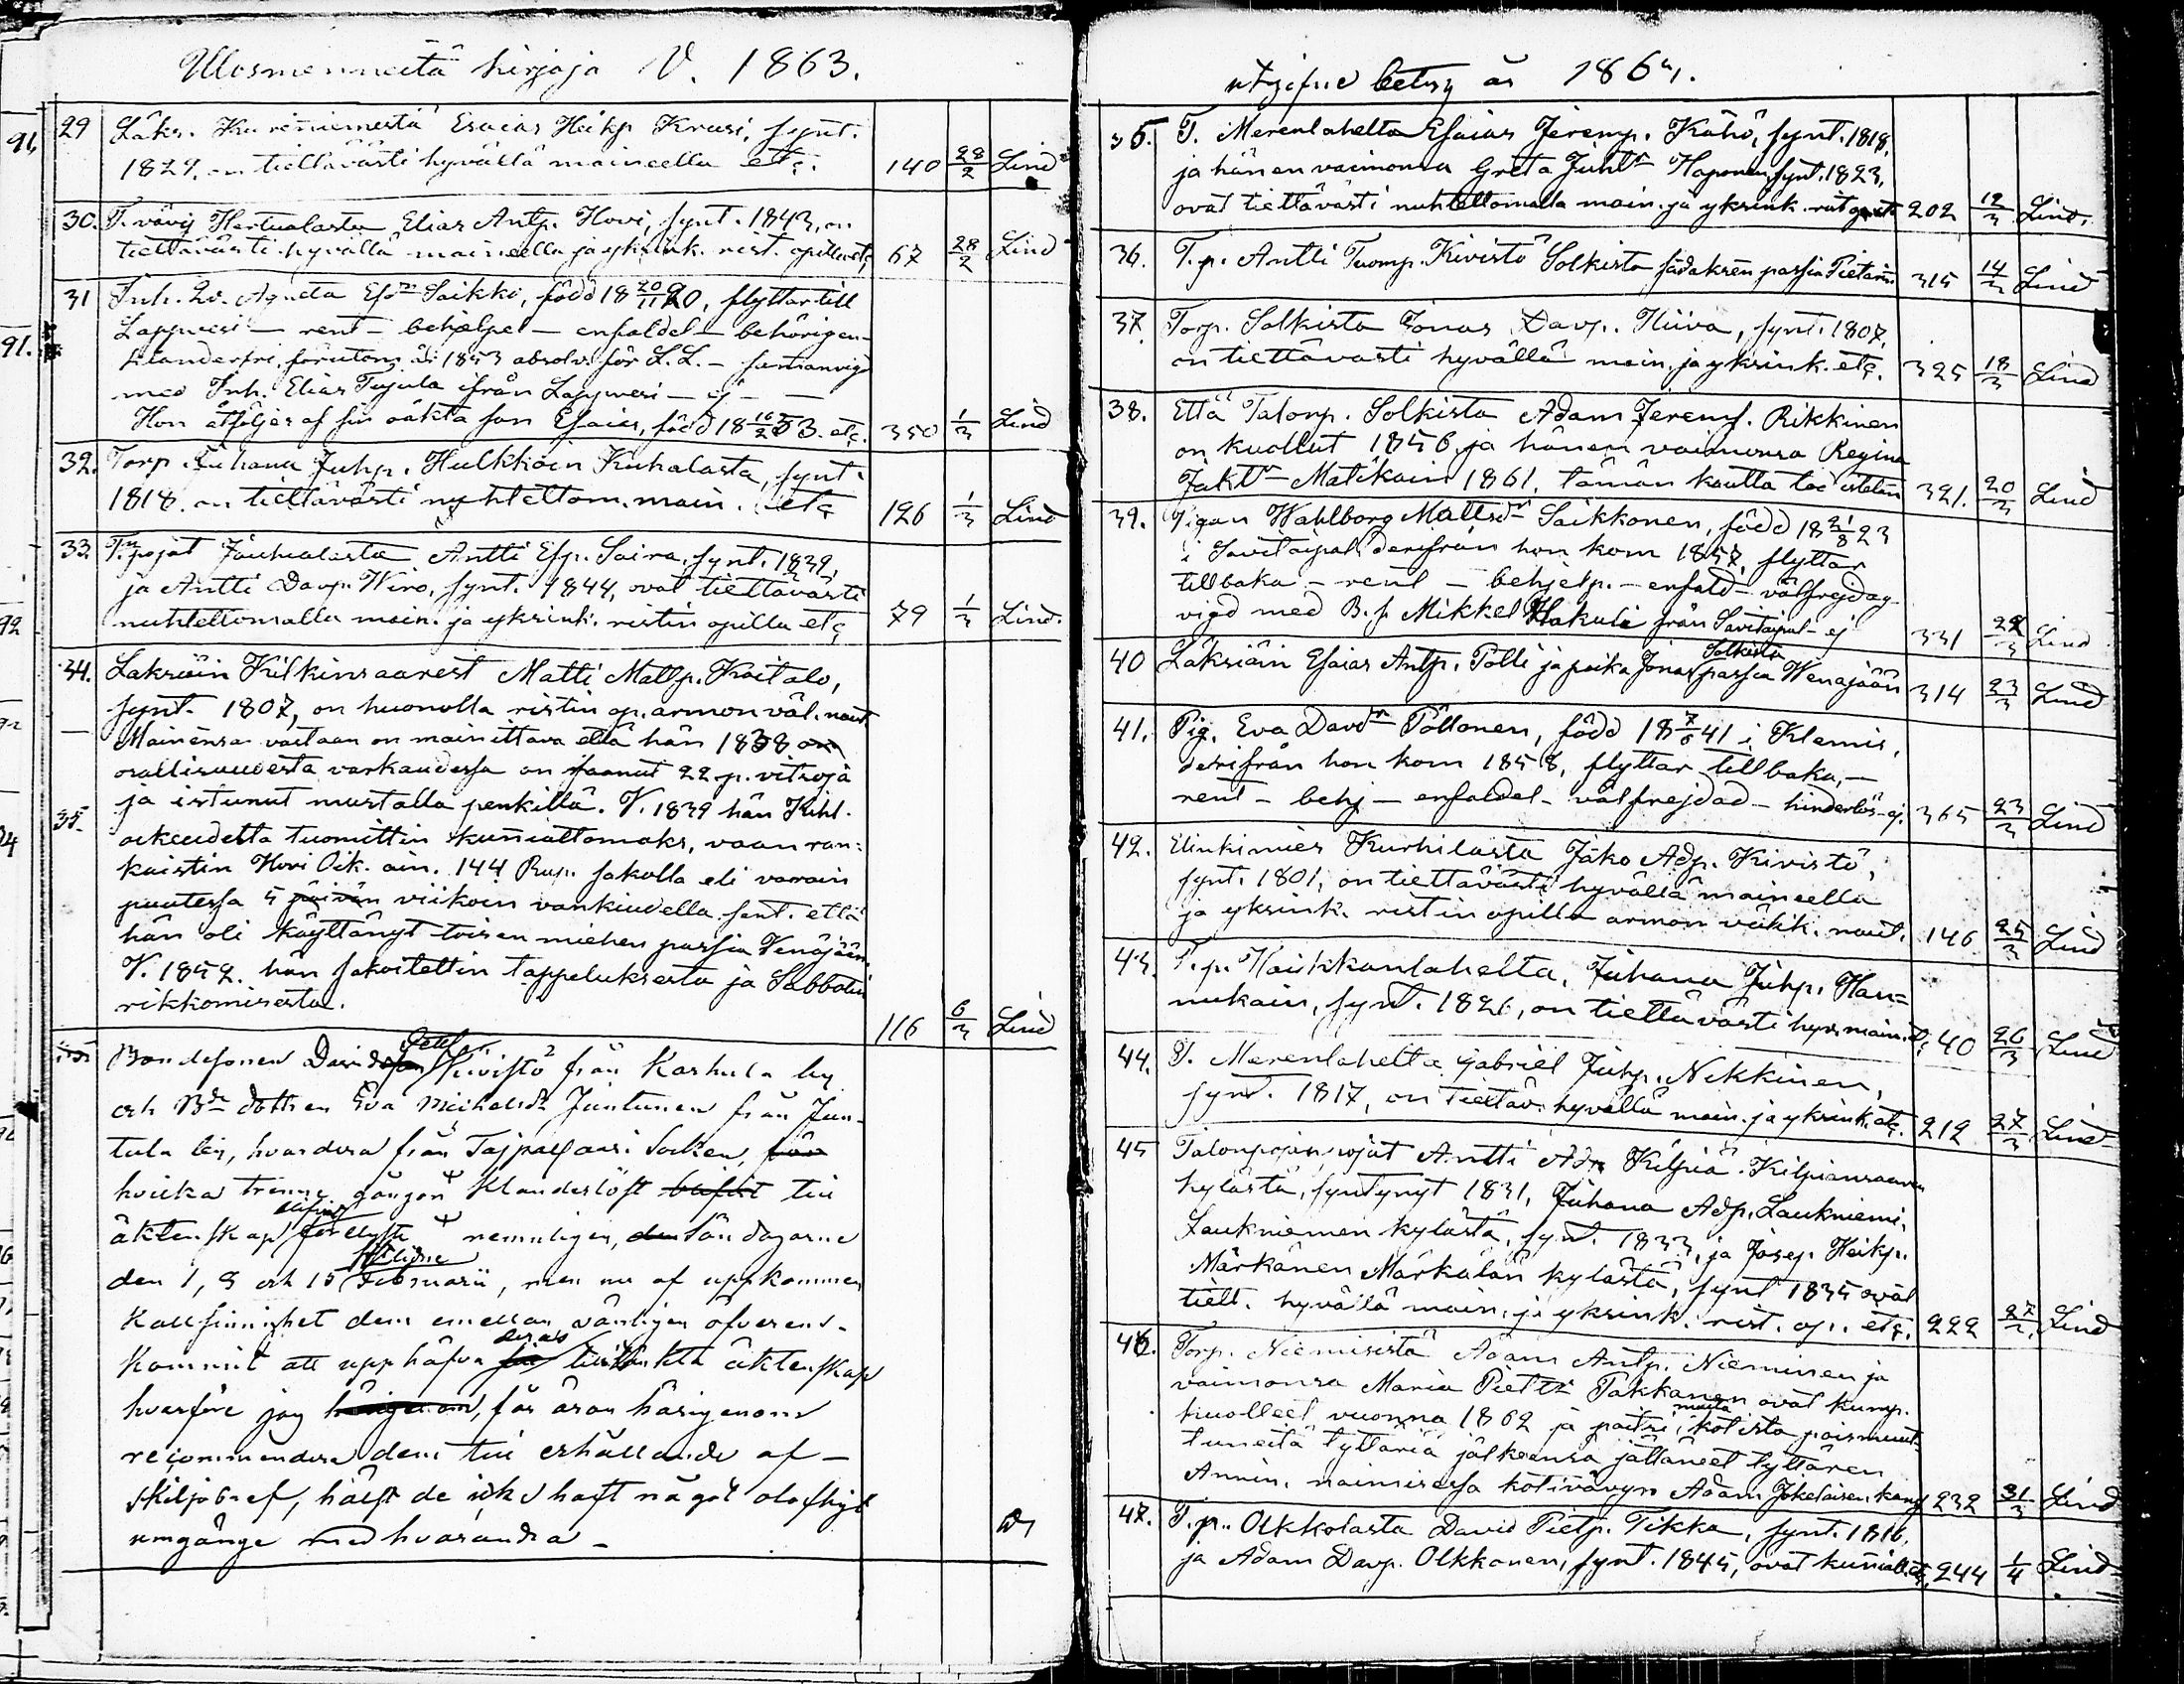 Ulosmenneitä kirjoja V. 1863.
29 Läks. Kureniemestä Esaias Heikp Kruusi, synt.
1829, on tiettävästi hyvällä maineella etc. 140 28/2 Lind
30. T. vävy Herttualasta Elias Antp. Hovi, synt. 1843, on
tiettävästi hyvällä maineella ja yksink. rist. opilla etc 67 28/2 Lind
31 Inh. Agneta Esdr Saikko, född 18 20/11 20, flyttar till
Lappvesi — rent — behjelpel — enfaldel — behörigen
klanderfri, förutom år 1853 absolv. för L.L. — samanvigd
med Inh. Elias Tujula ifrån Lappvesi — ej —
Hon åtföljes af sin oäkta son Esaias, född 18 16/2 53. etc. 350 1/3 Lind
32. Torp. Juhana Juhp. Hulkkoin Kuhalasta, synt.
1818. on tiettävästi nuhtettom. main. etc 126 1/3 Lind
33. T. pojat Jauhialasta Antti Esp. Saira, synt. 1839,
ja Antti Davp. Wiro, synt. 1844, ovat tiettävästi
nuhtettomalla main. ja yksink. ristin opilla etc 79 1/3 Lind.
34. Läksiäin Kilkinsaarest Matti Mattp. Koitalo,
synt. 1807, on huonolla ristin op. armon väl. naut
Mainensa vastaan on mainittava että hän 1838 on
osallisuudesta varkaudessa on saanut 22 p. vitsoja
ja istunut mustalla penkillä. V. 1839 hän Kihl.
oikeudelta tuomittin kunniattomaks, vaan ran-
kaistin Hovi Oik. ain. 144 Rup. sakolla eli varain
puutessa 5 päivän viikoin vankiudella sent. että
hän oli käyttänyt toisen miehen passia Venäjään.
V. 1852. hän sakoitettin tappeluksesta ja Sabbatin
rikkomisesta. 116 6/3 Lind
35 Bondesonen David Kivistö från Karhula by
och Bde dottren Eva Michelsdr Juntunen från Jun-
tula by, hvardera från Taipalsaari Socken,
hvilka trenne gångor klanderlöst till
äktenskap blifvit nemnligen, Söndagarne
den 1, 8 och 15 Februarii, men nu af uppkommen
Kallsinnighet dem emellan vänligen öfverens-
kommit att upphäfva deras tilltänkta äktenskap
hvarföre jag får äran härigenom
recommendera dem till erhållande af
skiljobref, hälst de icke haft något olofligt
umgänge med hvarandra —
utgifne betyg år 1864.
35. T. Merenlahelta Esaias Jeremp. Kähö, synt. 1818,
ja hänen vaimonsa Greta Juhtr Haponen, synt. 1823,
ovat tiettävästi nuhtettomalla main. ja yksink. rist 202 12/3 Lind.
36. T.p. Antti Tuomp. Kivistö Solkista passia Pietarin 315 14/3 Lind
37. Torp. Solkista Jonas Davp. Hiiva, synt. 1807,
on tiettävästi hyvällä main. ja yksink. etc. 325 18/3 Lind
38. Että Talonp. Solkista Adam Jeremp. Rikkinen
on kuollut 1856 ja hänen vaimonsa Regina
Jaktr Matikain 1861, tämän kautta 321. 20/3 Lind
39. Pigan Wahlborg Mattsdr Saikkonen, född 18 21/8 23
i Savitaipal, derifrån hon kom 1857, flyttar
tillbaka — rent — behjelp. — enfald — välfrejdad
vigd med B.s. Mikkel Hakuli från Savitaipal — ej 331 22/3 Lind
40 Läksiäin Esaias Antp. Polli ja poika Jonas Solkista passia Wenäjään 314 23/3 Lind
41. Pig. Eva Davdr Pöllonen, född 18 7/6 41 i Klemis,
derifrån hon kom 1858, flyttar tillbaka, —
rent — behj — enfaldel — välfrejdad — hinderlös — ej. 365 23/3 Lind
42. Elinkimies Kurhilasta Jako Adp. Kivistö,
synt. 1801, on tiettävästi hyvällä maineella
ja yksink. ristin opilla armon välik. naut. 146 25/3 Lind
43. T.p. Haikkanlahelta, Juhana Juhp. Han=
nukain, synt. 1826, on tiettävästi hyv. main. etc 40 26/3 Lind
44. T. Merenlahelta Gabriel Juhp. Nikkinen,
synt. 1817, on tiettäv. hyvällä main. ja yksink. etc. 212 27/3 Lind
45 Talonpojan pojat Antti Adp Kilpiä Kilpiänsaaren
kylästä, syntynyt 1831, Juhana Adp. Laukniemi,
Laukniemen kylästä, synt. 1833, ja Josep Heikp.
Märkänen Märkälän kylästä, synt 1835 ovat
tiett. hyvällä main. ja yksink. rist. op. etc. 222 27/3 Lind
46. Torp. Niemisistä Adam Antp. Nieminen ja
vaimonsa Maria Piettr Takkanen ovat kump.
kuolleet vuonna 1862 ja paitsi muita kotista poismuut-
tuneita tyttäriä jälkeensä jättäneet tyttären
Annin, naimisessa kotivävyn Adam Jokelaisen kans 232 31/3 Lind
47. T.p. Olkkolasta David Pietp. Tikka, synt. 1816,
ja Adam Davp. Olkkonen, synt. 1845, ovat kunniall. etc. 244 1/4 Lind